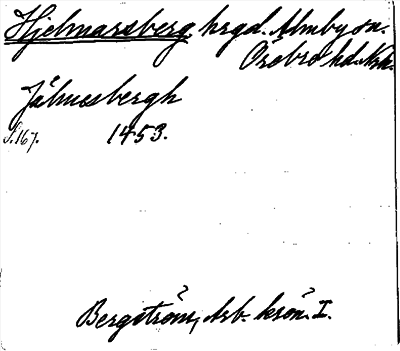 Hjelmarsberg hrgd. Almby sn.
Örebro hd. Nke.
Jälmssbergh
S. 167. 1453.
Bergström, Arb. krön. I.